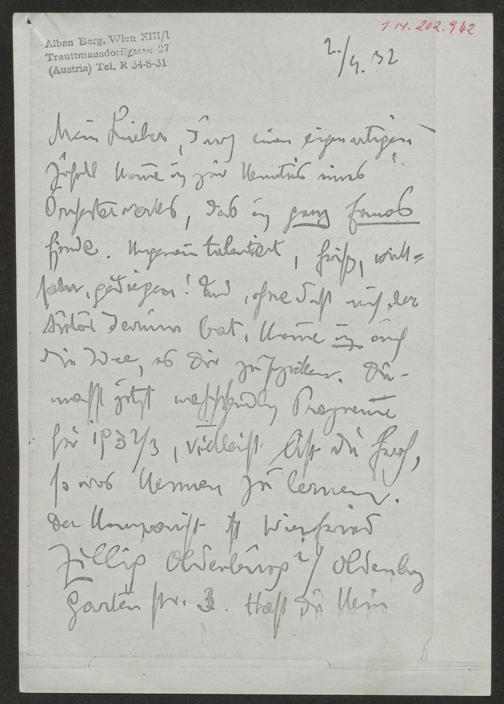 I.N. 202.942
Alban Berg, Wien XIII/1
Trauttmansdorffgasse 27
(Austria) Tel. R 34-8-31
2./9. 32
Mein Lieber, durch einen eigenartigen
Zufall kome ich zur Kenntnis eines
Orchesterwerkes, das ich ganz famos
finde. Ungemein talentiert, frisch, wirk=
sam, gediegen! Und, ohne daß mich der
Autor darum bat, kome ich auf
die Idee, es Dir zu schicken. Du
machst jetzt Programme
für 1932/3, vielleicht bist Du froh,
so was kennen zu lernen.
Der Komponist ist Winfried
Zillig Oldenburg i/ Oldenburg
Gartenstr. 3. Hast Du kein